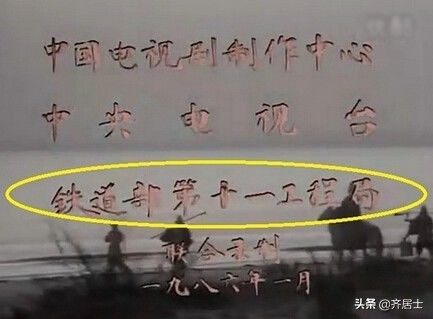 中国电视剧制作中心
中央电视台
铁道部第十一工程局
联合录制
一九八六年一月
头条 @齐居士